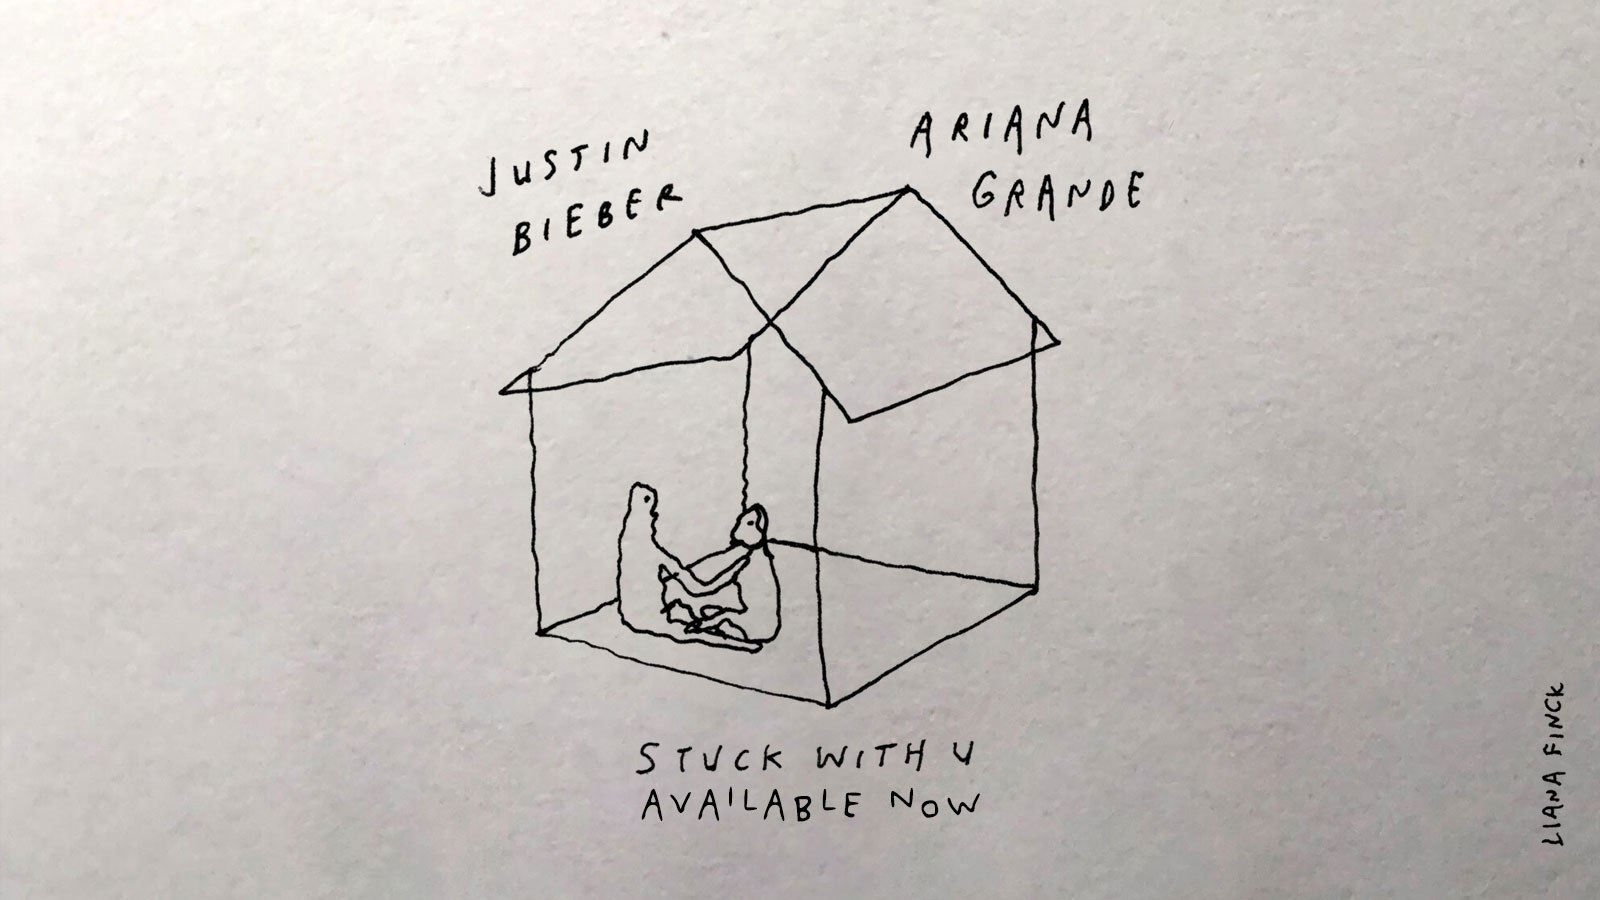 JUSTIN
BIEBER
ARIANA
GRANDE
STUCK WITH U
AVAILABLE NOW
LIANA FINCK